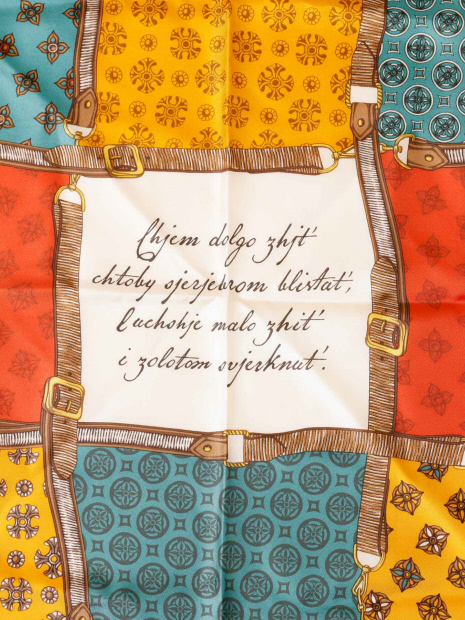 Chjem dolgo zhjt'
chtoby sjerjebrom blistat',
luchshje malo zhit'
i zolotom svjerknut'.